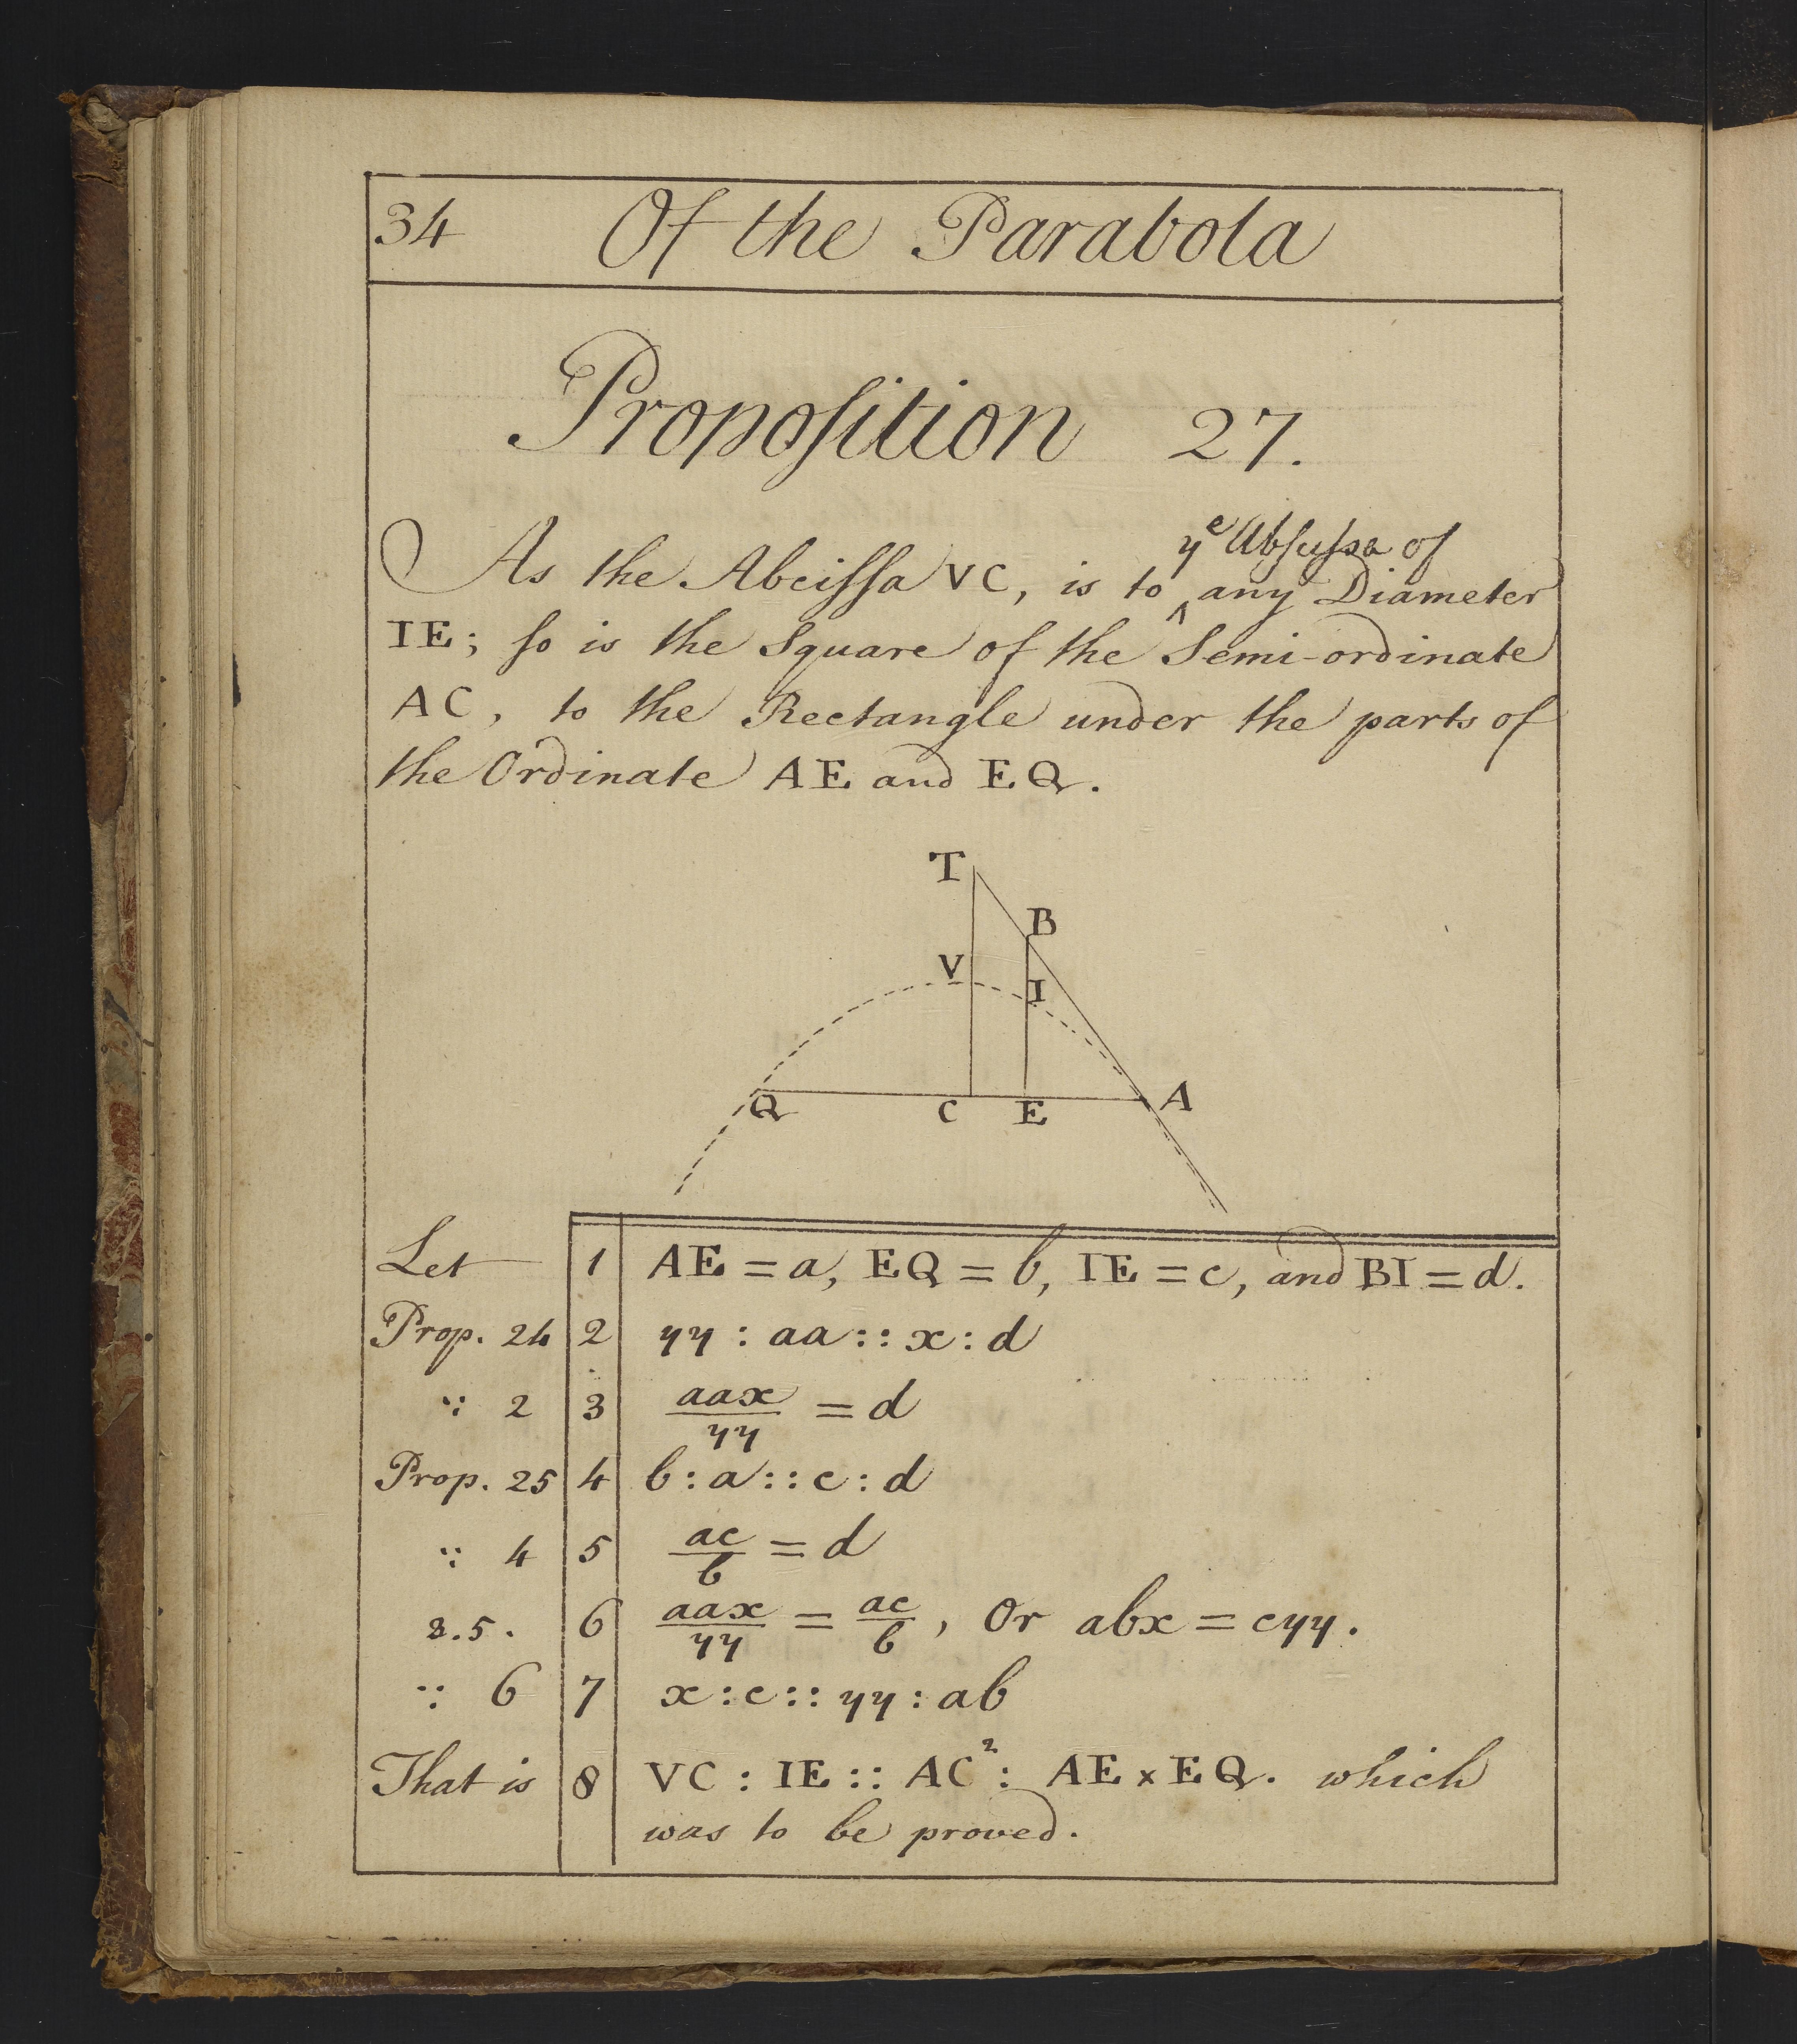 34 Of the Parabola
Propoſition 27.
yᵉ Abſciſsa of
As the Abciſſa VC, is to ‸ any Diameter
IE; ſo is the Square of the Semi-ordinate
AC, to the Rectangle under the parts of
the Ordinate AE and EQ.
T
B
V
I
Q C E A
Let 1 AE = a, EQ = b, IE = c, and BI = d.
Prop. 24 2 yy : aa :: x : d
∵ 2 3 aax/yy = d
Prop. 25 4 b : a :: c : d
∵ 4 5 ac/b = d
3.5. 6 aax/yy = ac/b, Or abx = cyy.
∵ 6 7 x : c :: yy : ab
That is 8 VC : IE :: AC² : AE × EQ. which
was to be proved.